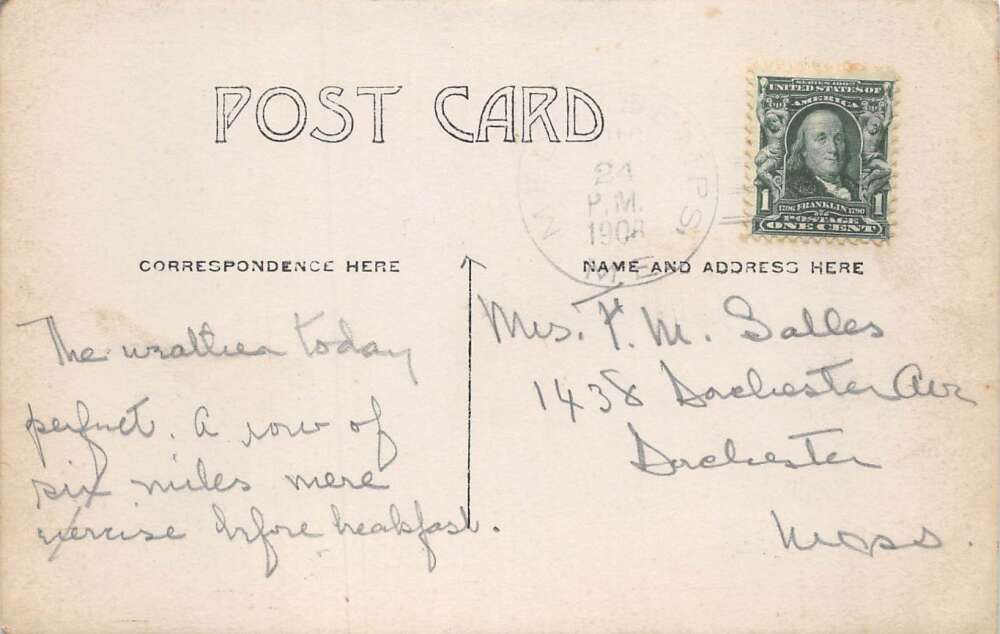 POST CARD
SERIES 1902
UNITED STATES OF
AMERICA
1 1
1706 FRANKLIN 1790
POSTAGE
ONE CENT
24
P.M.
1908
ME
CORRESPONDENCE HERE
NAME AND ADDRESS HERE
The weather today
perfect. A row of
six miles mere
exercise before breakfast.
Mrs. F. M. Salles
1438 Dorchester Ave
Dorchester
Mass.